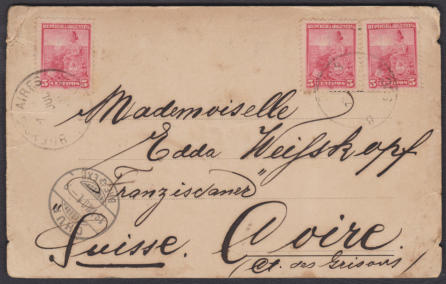 REPUBLICA ARGENTINA REPUBLICA ARGENTINA REPUBLICA ARGENTINA
5 CENTAVOS 5 5 CENTAVOS 5 5 CENTAVOS 5
AIRES
Mademoiselle
Edda Weisskopf
"Franziscaner"
Suisse. Coire.
(Ct. des Grisons)